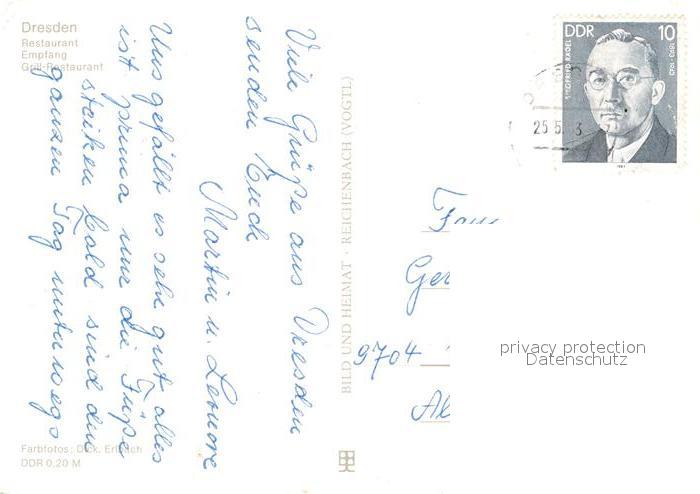 Dresden
Restaurant
Empfang
Grill-Restaurant
Viele Grüße aus Dresden
senden Euch
Martin u. Leonore
Uns gefällt es sehr gut alles
ist prima nur die Füße
streiken bald sind den
ganzen Tag unterwegs
Farbfotos: Dick, Erlbach
DDR 0,20 M
BILD UND HEIMAT · REICHENBACH (VOGTL)
DDR 10
SIEGFRIED RÄDEL
1893-1943
1981
25.5. 3
Fam
Ger
9704
privacy protection
Datenschutz